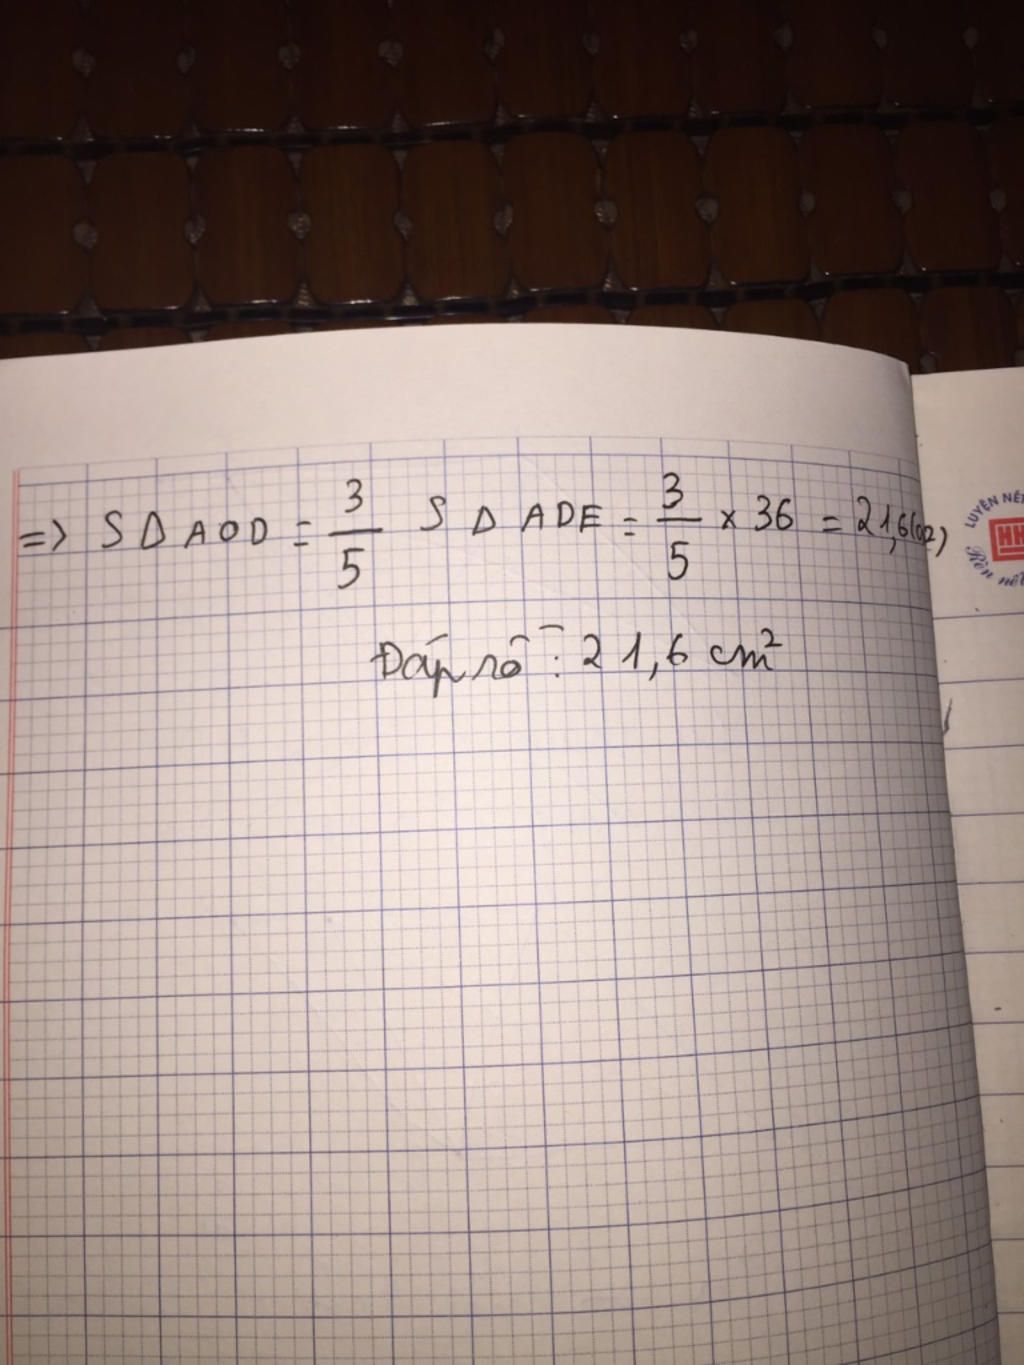 => S Δ AOD = 3/5 S Δ ADE = 3/5 x 36 = 21,6(
Đáp số: 21,6 cm²
LUYỆN NÉT
HH
Rèn nết